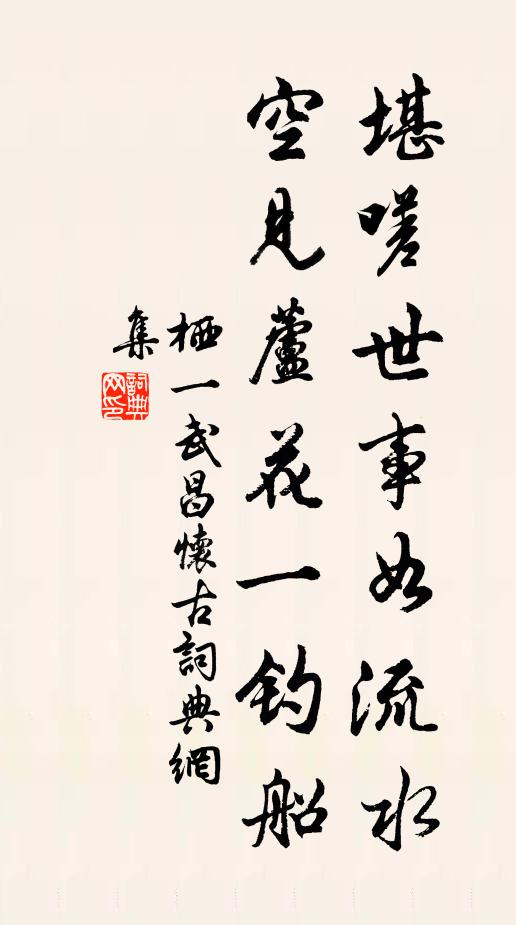 堪嗟世事如流水
空見蘆花一钓船
栖一武昌懷古詞典網
集
詞典
网印